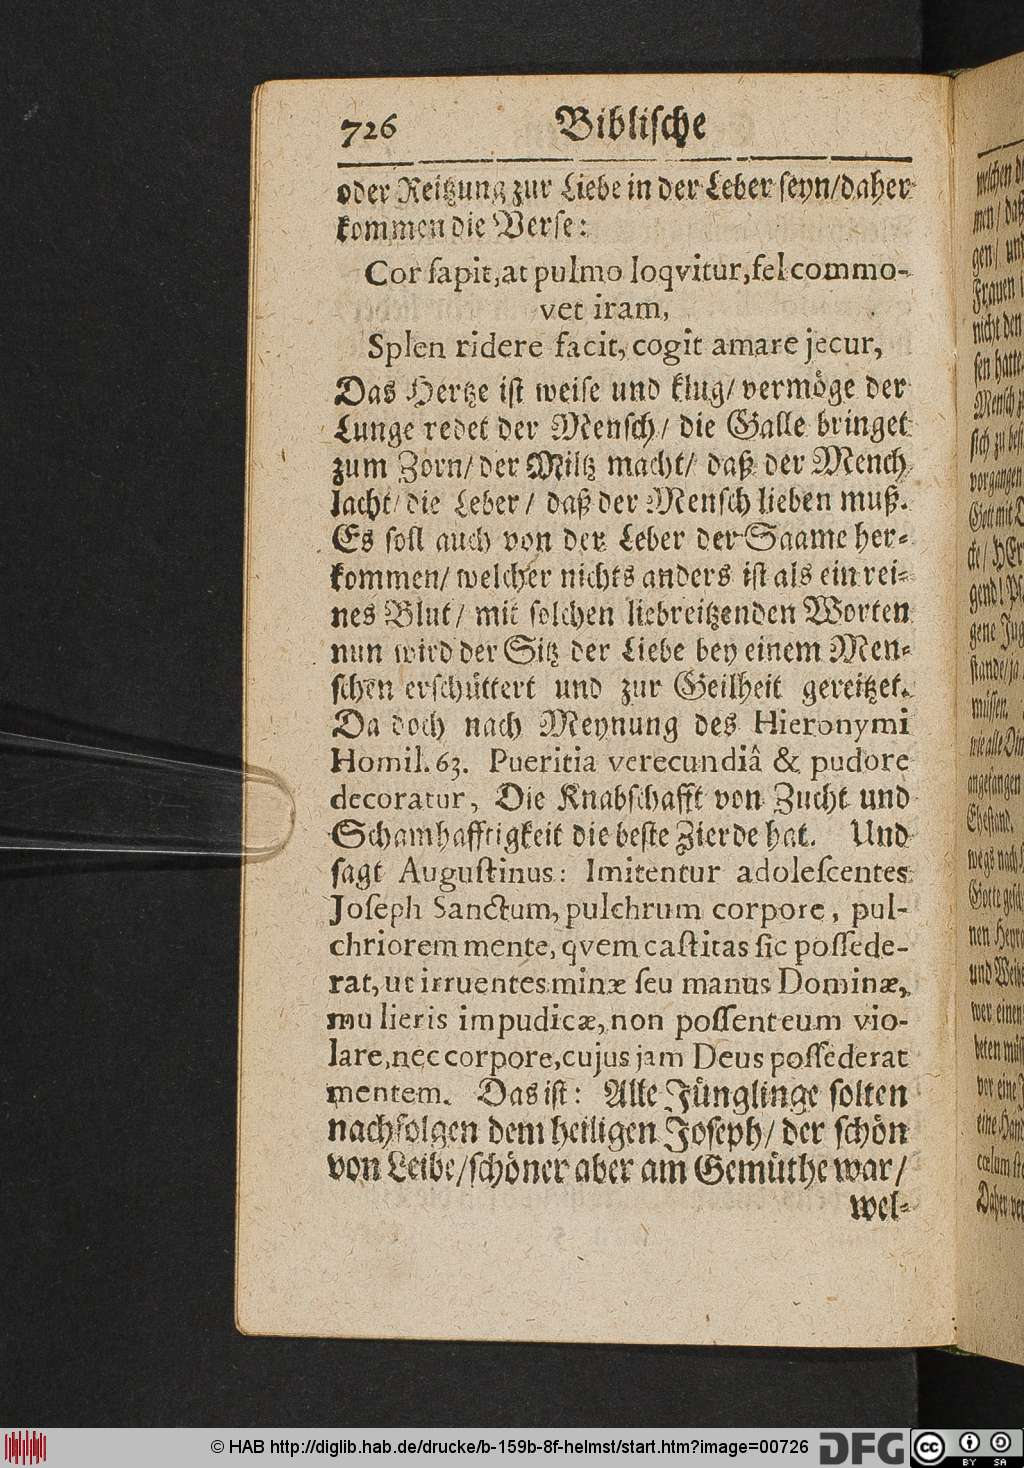 726 Biblische
oder Reitzung zur Liebe in der Leber seyn/daher
kommen die Verse:
Cor sapit, at pulmo loqvitur, fel commo-
vet iram,
Splen ridere facit, cogit amare jecur,
Das Hertze ist weise und klug/ vermöge der
Lunge redet der Mensch/ die Galle bringet
zum Zorn/ der Miltz macht/ daß der Mench
lacht/ die Leber/ daß der Mensch lieben muß.
Es soll auch von der Leber der Saame her-
kommen/ welcher nichts anders ist als ein rei-
nes Blut/ mit solchen liebreitzenden Worten
nun wird der Sitz der Liebe bey einem Men-
schen erschüttert und zur Geilheit gereitzet.
Da doch nach Meynung des Hieronymi
Homil. 63. Pueritia verecundiâ & pudore
decoratur, Die Knabschafft von Zucht und
Schamhafftigkeit die beste Zierde hat. Und
sagt Augustinus: Imitentur adolescentes
Joseph Sanctum, pulchrum corpore, pul-
chriorem mente, qvem castitas sic possede-
rat, ut irruentes minæ seu manus Dominæ,
mulieris impudicæ, non possent eum vio-
lare, nec corpore, cujus jam Deus possederat
mentem. Das ist: Alle Jünglinge solten
nachfolgen dem heiligen Joseph/ der schön
von Leibe/ schöner aber am Gemüthe war/
wel-
© HAB http://diglib.hab.de/drucke/b-159b-8f-helmst/start.htm?image=00726 DFG cc BY SA